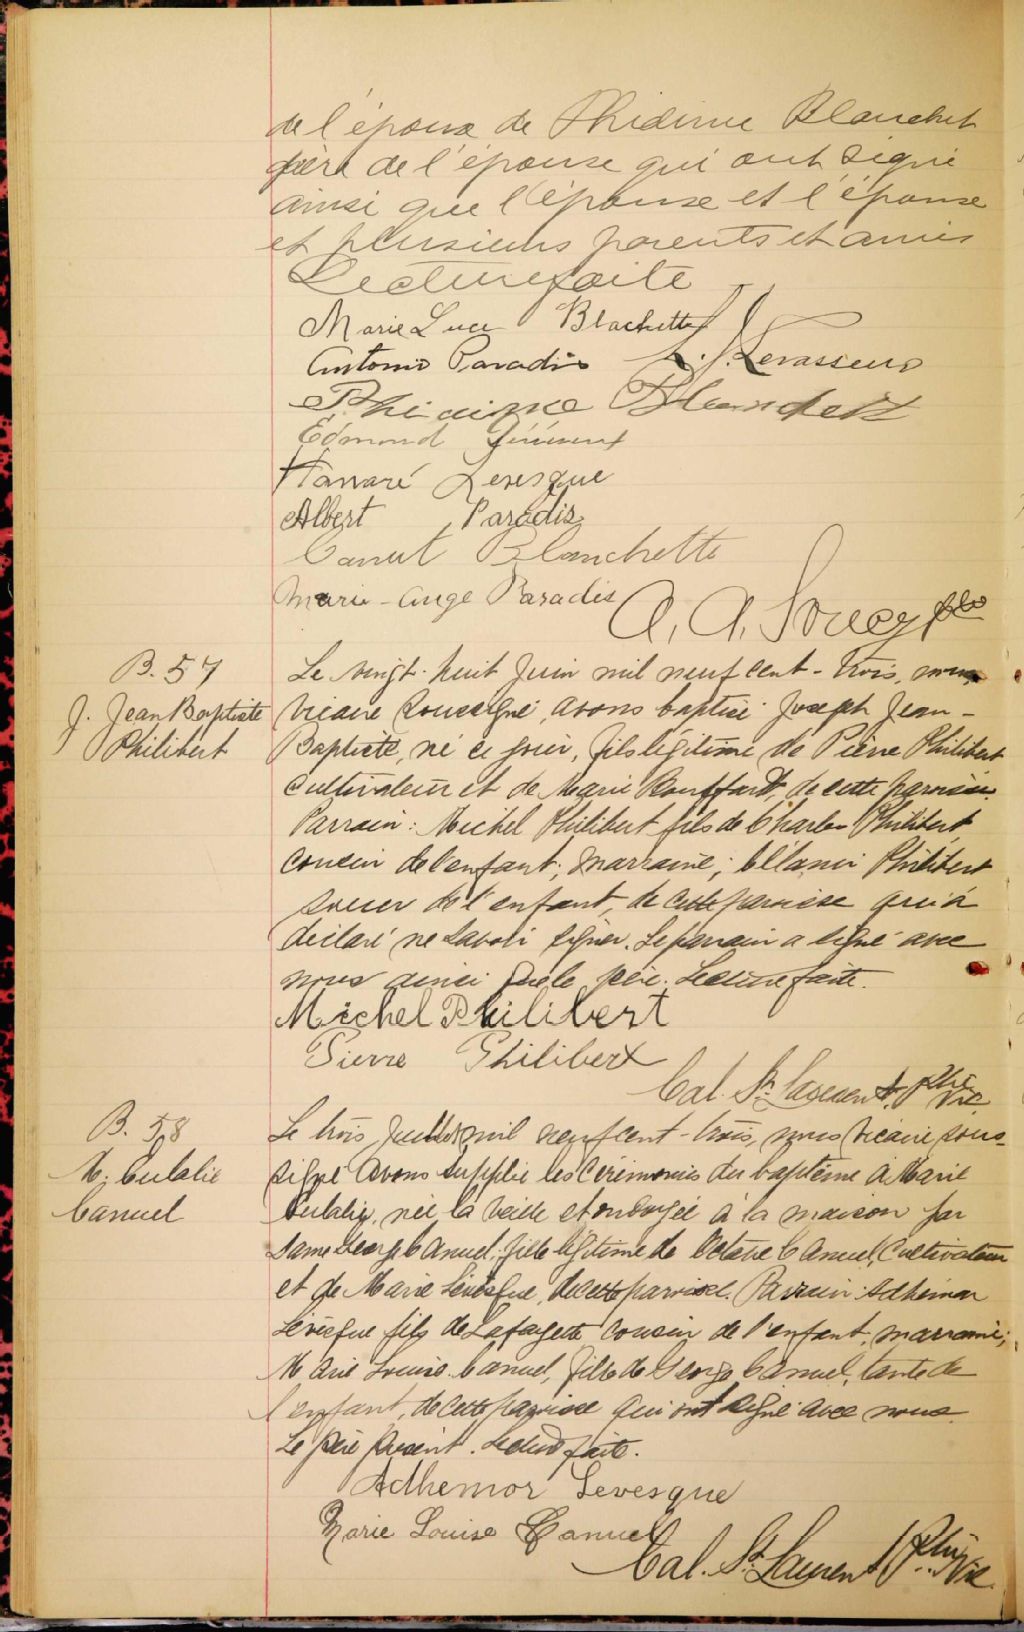 de l'époux de Phidime Blanchet
père de l'épouse qui ont signé
ainsi que l'épouse et l'épouse
et plusieurs parents et amis
Lecture faite
Marie Luce Blachette
Antonio Paradis L. J. Levasseur
Phidime Blanchett
Edmond
Honoré Levesque
Albert Paradis
Canut Blanchette
Marie-Ange Paradis A. A. Soucy ptre
B. 57
J. Jean Baptiste
Philibert
Le vingt-huit juin mil neuf cent-trois, nous,
vicaire soussigné, avons baptisé Joseph Jean-
Baptiste, né ce jour, fils légitime de Pierre Philibert
cultivateur et de Marie Rouffard, de cette paroisse.
Parrain: Michel Philibert fils de Charles Philibert
cousin de l'enfant; marraine; Mélanie Philibert
soeur de l'enfant, de cette paroisse qui a
déclaré ne savoir signer. Le parrain a signé avec
nous ainsi que le père. Lecture faite.
Michel Philibert
Pierre Philibert
Cal. St. Laurent, Ptre Vic.
B. 58
M. Eulalie
Canuel
Le trois juillet mil neuf cent-trois, nous vicaire sous-
signé avons supplié les cérémonies du baptême à Marie
Eulalie, née la veille et ondoyée à la maison par
Dame George Canuel, fille légitime de Octave Canuel, cultivateur
et de Marie Lévesque, de cette paroisse. Parrain: Adhémar
Lévesque fils de Lafayette cousin de l'enfant, marraine;
Marie Louise Canuel, fille de George Canuel, tante de
l'enfant, de cette paroisse qui ont signé avec nous.
Le père présent. Lecture faite.
Adhemor Levesque
Marie Louise Canuel
Cal. St. Laurent Ptre Vic.